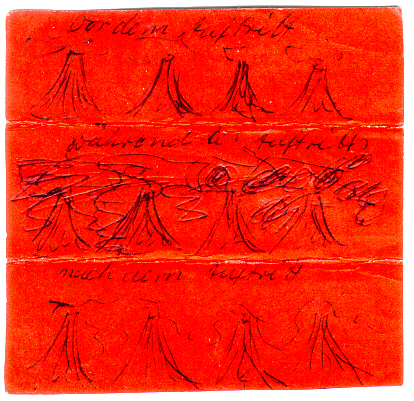 vor dem Auftritt
während des Auftritts
nach dem Auftritt